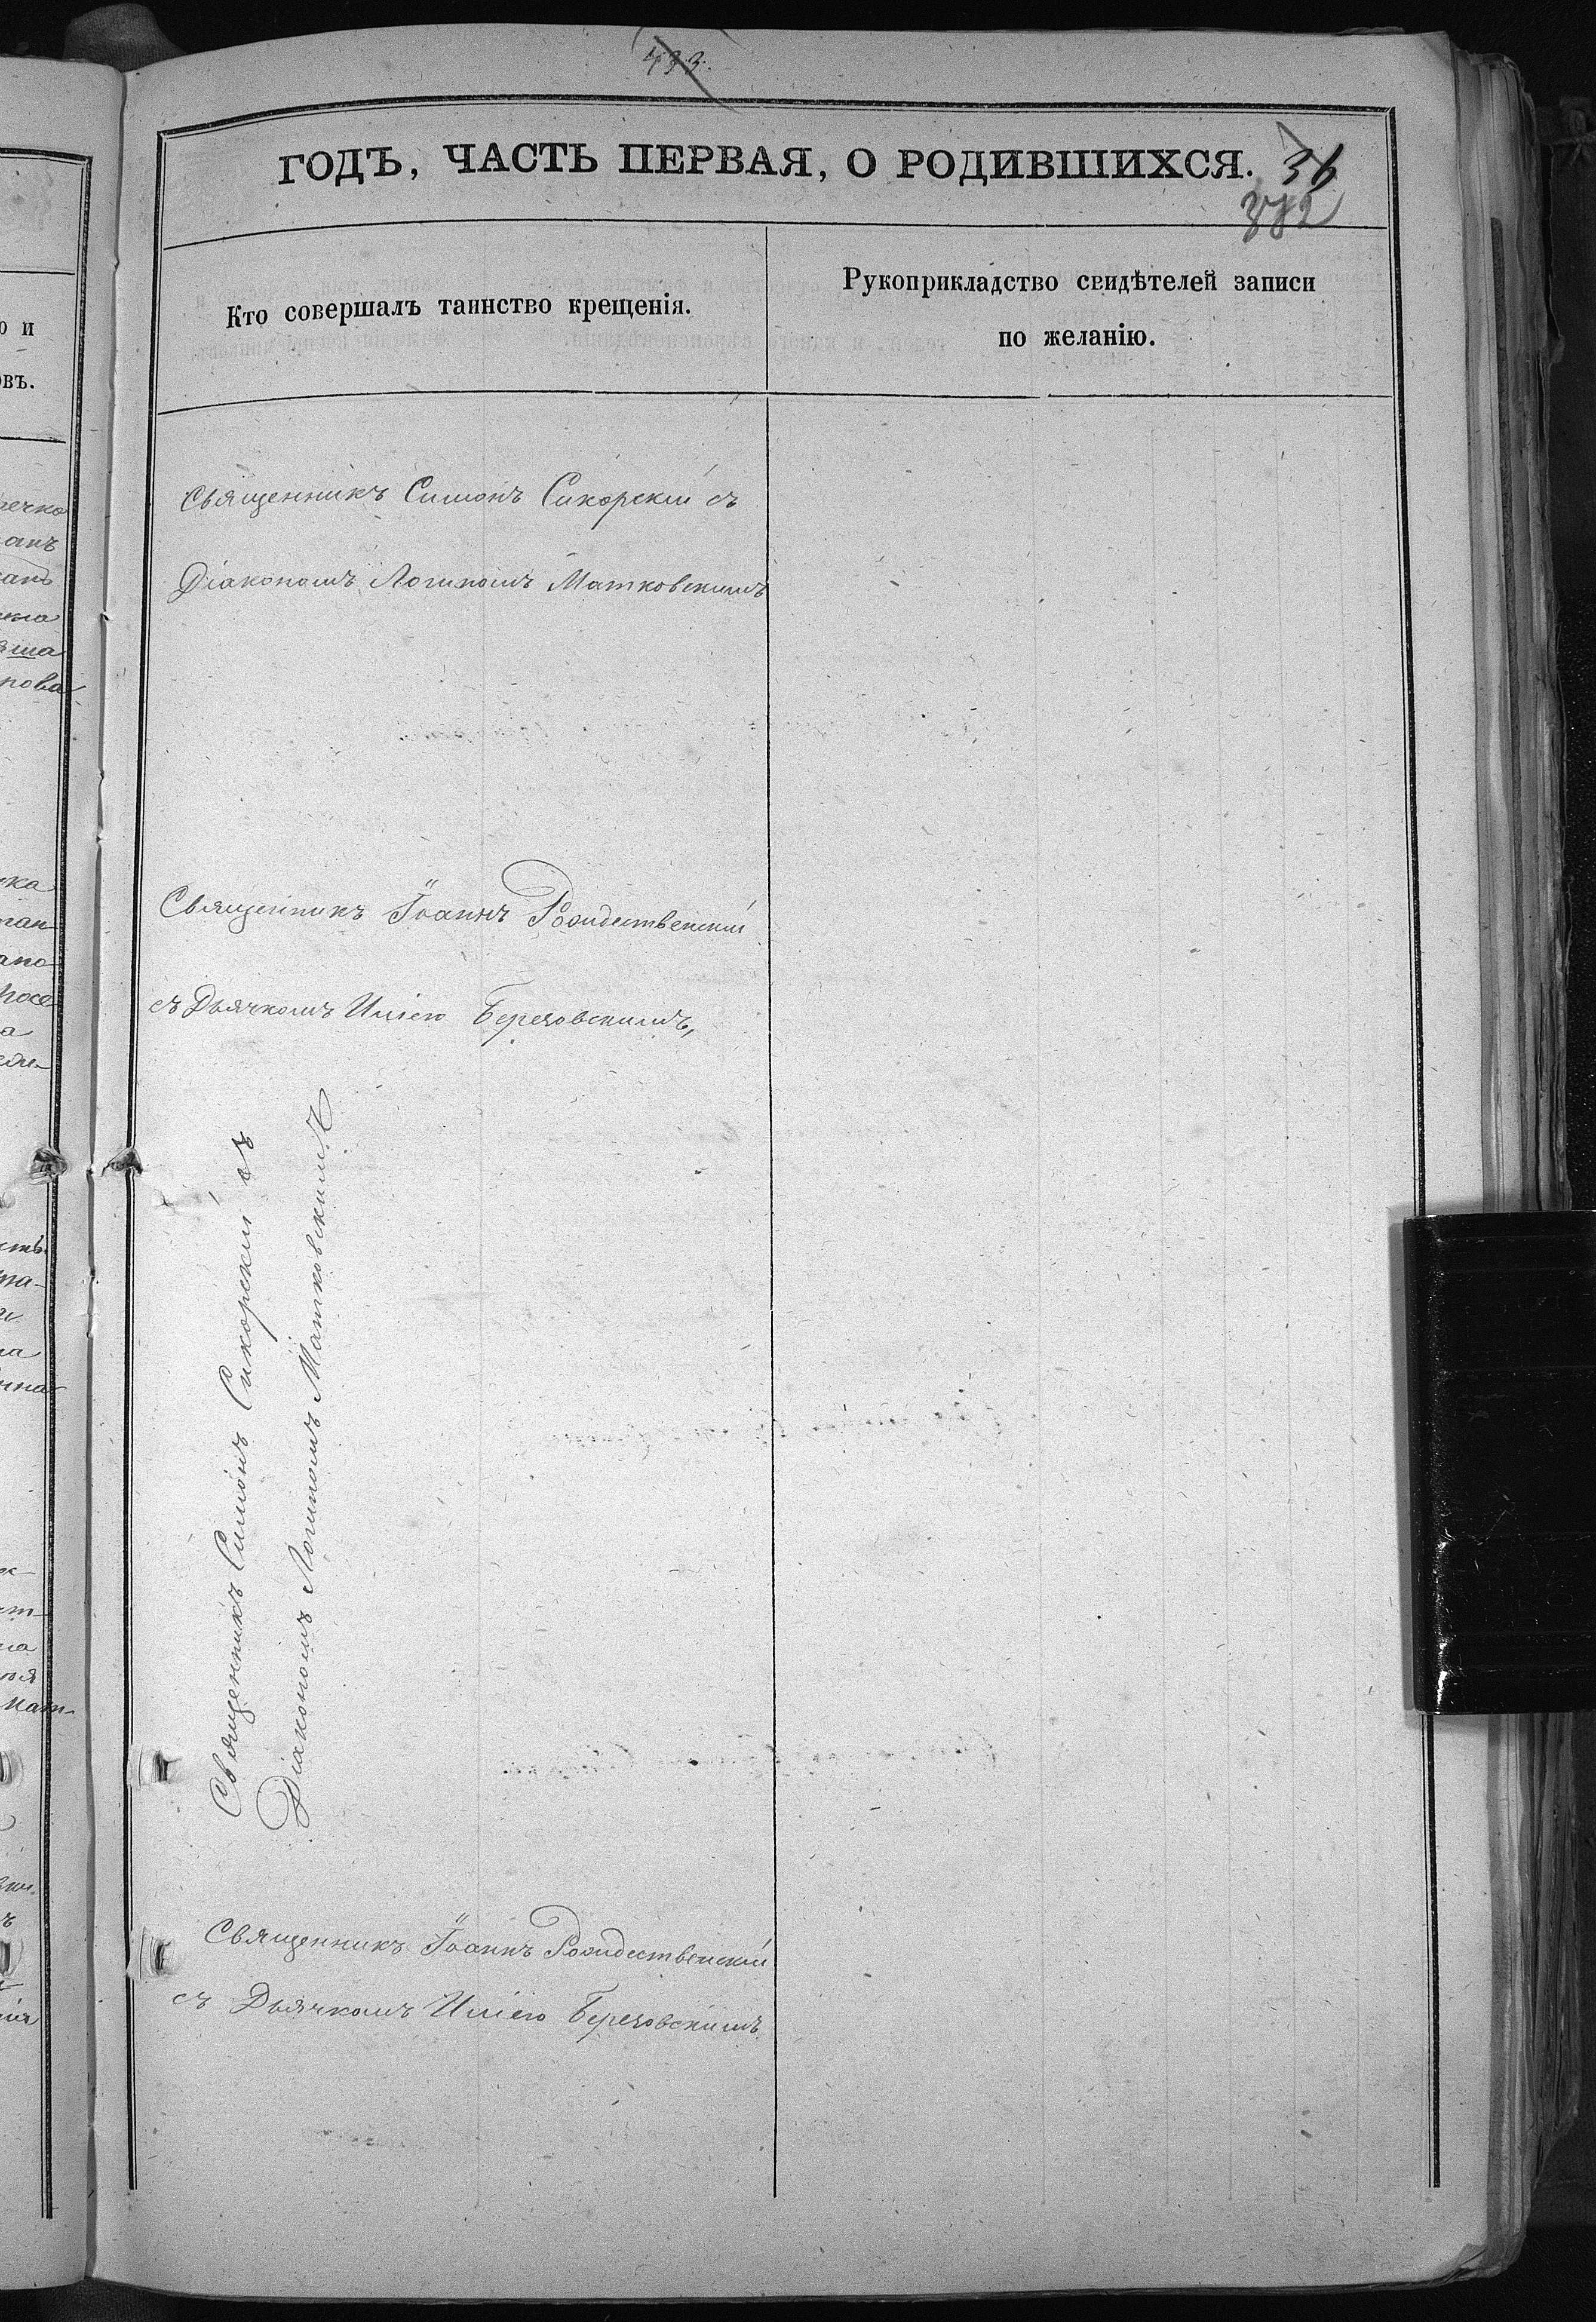 433.
ГОДЪ, ЧАСТЬ ПЕРВАЯ, О РОДИВШИХСЯ. 36
382
Кто совершалъ таинство крещенія.
Рукоприкладство свидѣтелей записи
по желанію.
Священникъ Симонъ Сикорскій съ
Діакономъ Логиномъ Матковскимъ
Священникъ Іоаннъ Рождественскій
съ Дьячкомъ Иліею Березовскимъ,
Священникъ Симонъ Сикорскій съ
Діакономъ Логиномъ Матковскимъ
Священникъ Іоаннъ Рождественскій
съ Дьячкомъ Иліею Березовскимъ